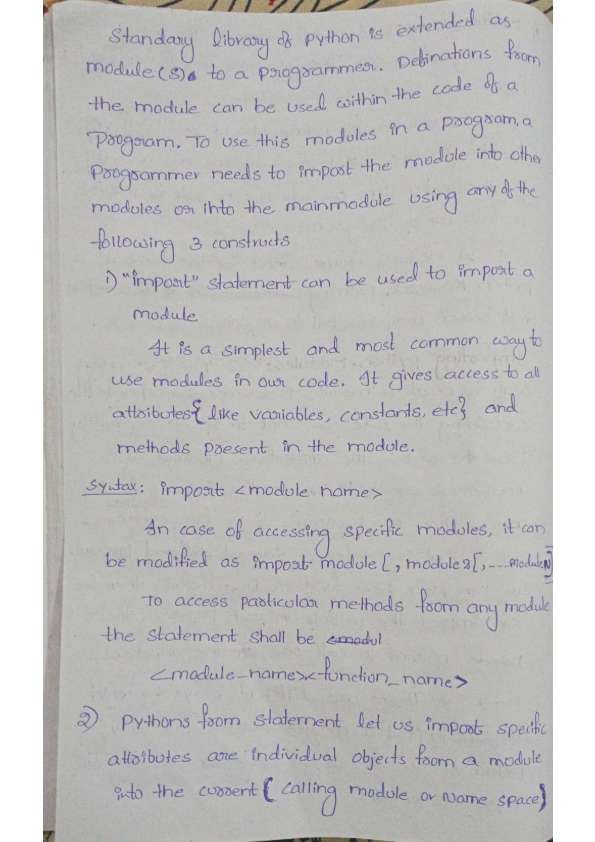 Standary library of python is extended as
module(s) to a programmer. Definations from
the module can be used within the code of a
program. To use this modules in a program, a
programmer needs to import the module into other
modules or into the mainmodule using any of the
following 3 constructs
1) "import" statement can be used to import a
module
It is a simplest and most common way to
use modules in our code. It gives access to all
attributes{ like variables, constants, etc} and
methods present in the module.
Sytax: import <module name>
In case of accessing specific modules, it can
be modified as import module [, module2[,....moduleN]
To access particular methods from any module
the statement shall be
<module_name>.<function_name>
2) pythons from statement let us import specific
attributes are individual objects from a module
into the current { calling module or Name space}